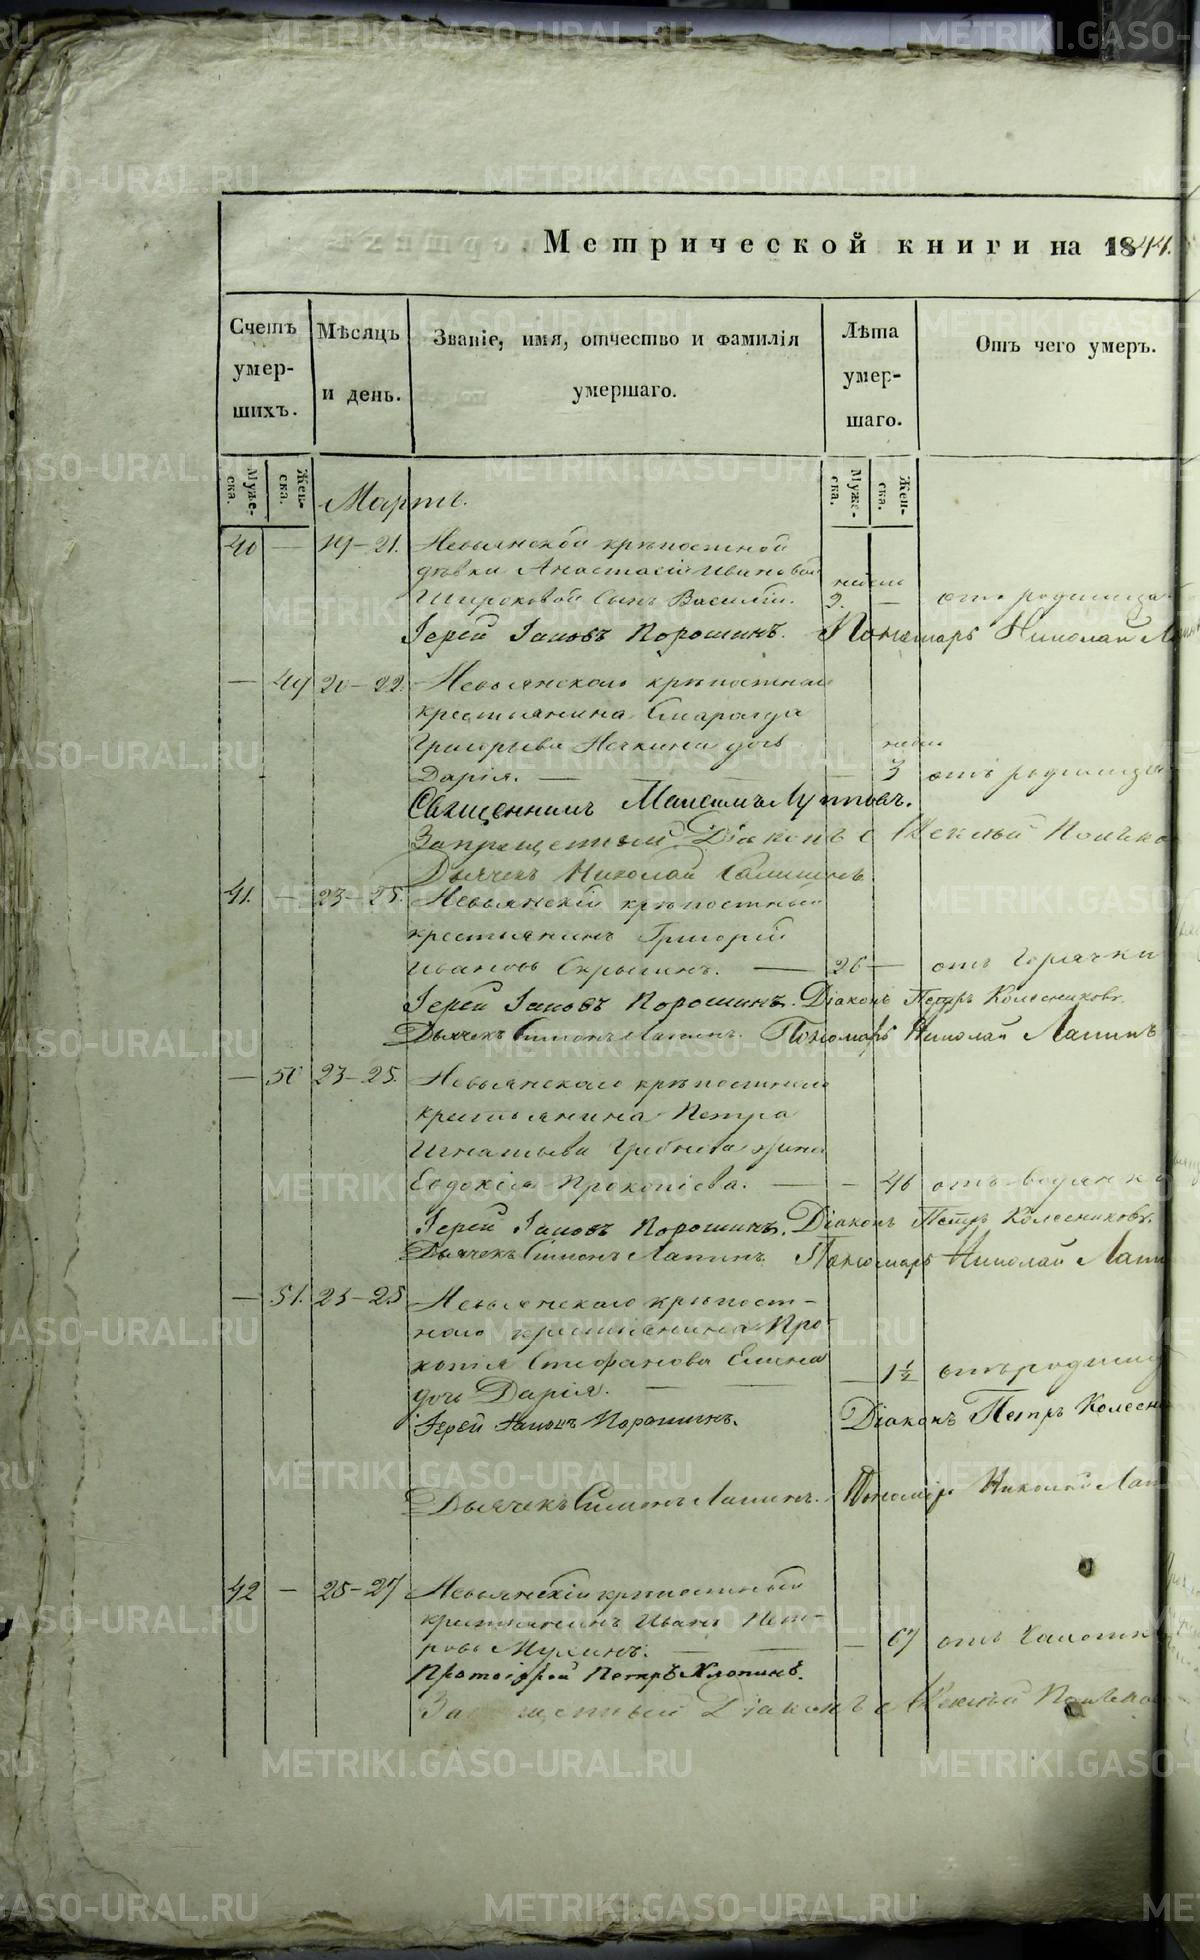 Метрической книги на 1844.
Счетъ умер-шихъ.
Мѣсяцъ и день.
Званіе, имя, отчество и фамилія умершаго.
Лѣта умер-шаго.
Отъ чего умеръ.
Муже-ска.
Жен-ска.
Муже-ска.
Жен-ска.
Мартъ.
40 — 19–21. Невьянской крѣпостной
дѣвки Анастасіи Ивановой недѣли
Широковой Сынъ Василій. 2. — отъ родимца
Іерей Іаковъ Порошинъ. Пономарь Николай
— 49 20–22. Невьянскаго крѣпостнаго
крестьянина Смарагда
Григорьева дочь недѣли
Дарія. — 3 отъ родимца
Священникъ Максимъ Лутговъ.
Запрещенный Діаконъ
Дьячекъ Николай
41. — 23–25. Невьянскій крѣпостный
крестьянинъ Григорій
Ивановъ Скрыпинъ. — 26 — отъ Горячки
Іерей Іаковъ Порошинъ. Діаконъ Петръ Колесниковъ.
Дьячекъ Симонъ Лапинъ. Пономарь Николай Лапинъ
— 50 23–25. Невьянскаго крѣпостнаго
крестьянина Петра
Игнатьева жена
Евдокія Прокопіева. — — 46 отъ водянки
Іерей Іаковъ Порошинъ. Діаконъ Петръ Колесниковъ.
Дьячекъ Симонъ Лапинъ. Пономарь Николай Лапи
— 51. 23–25 Невьянскаго крѣпост-
наго крестьянина Про
копія Стефанова
дочь Дарія. — — 1½ отъ родимц
Іерей Іаковъ Порошинъ. Діаконъ Петръ Колесн
Дьячекъ Симонъ Лапинъ. Пономарь Николай Лап
42 — 25–27 Невьянскій крѣпостный
крестьянинъ Иванъ Пет-
ровъ — — 67 отъ Чахотк
Протоіерей Петръ Хлопинъ.
Діаконъ
METRIKI.GASO-URAL.RU